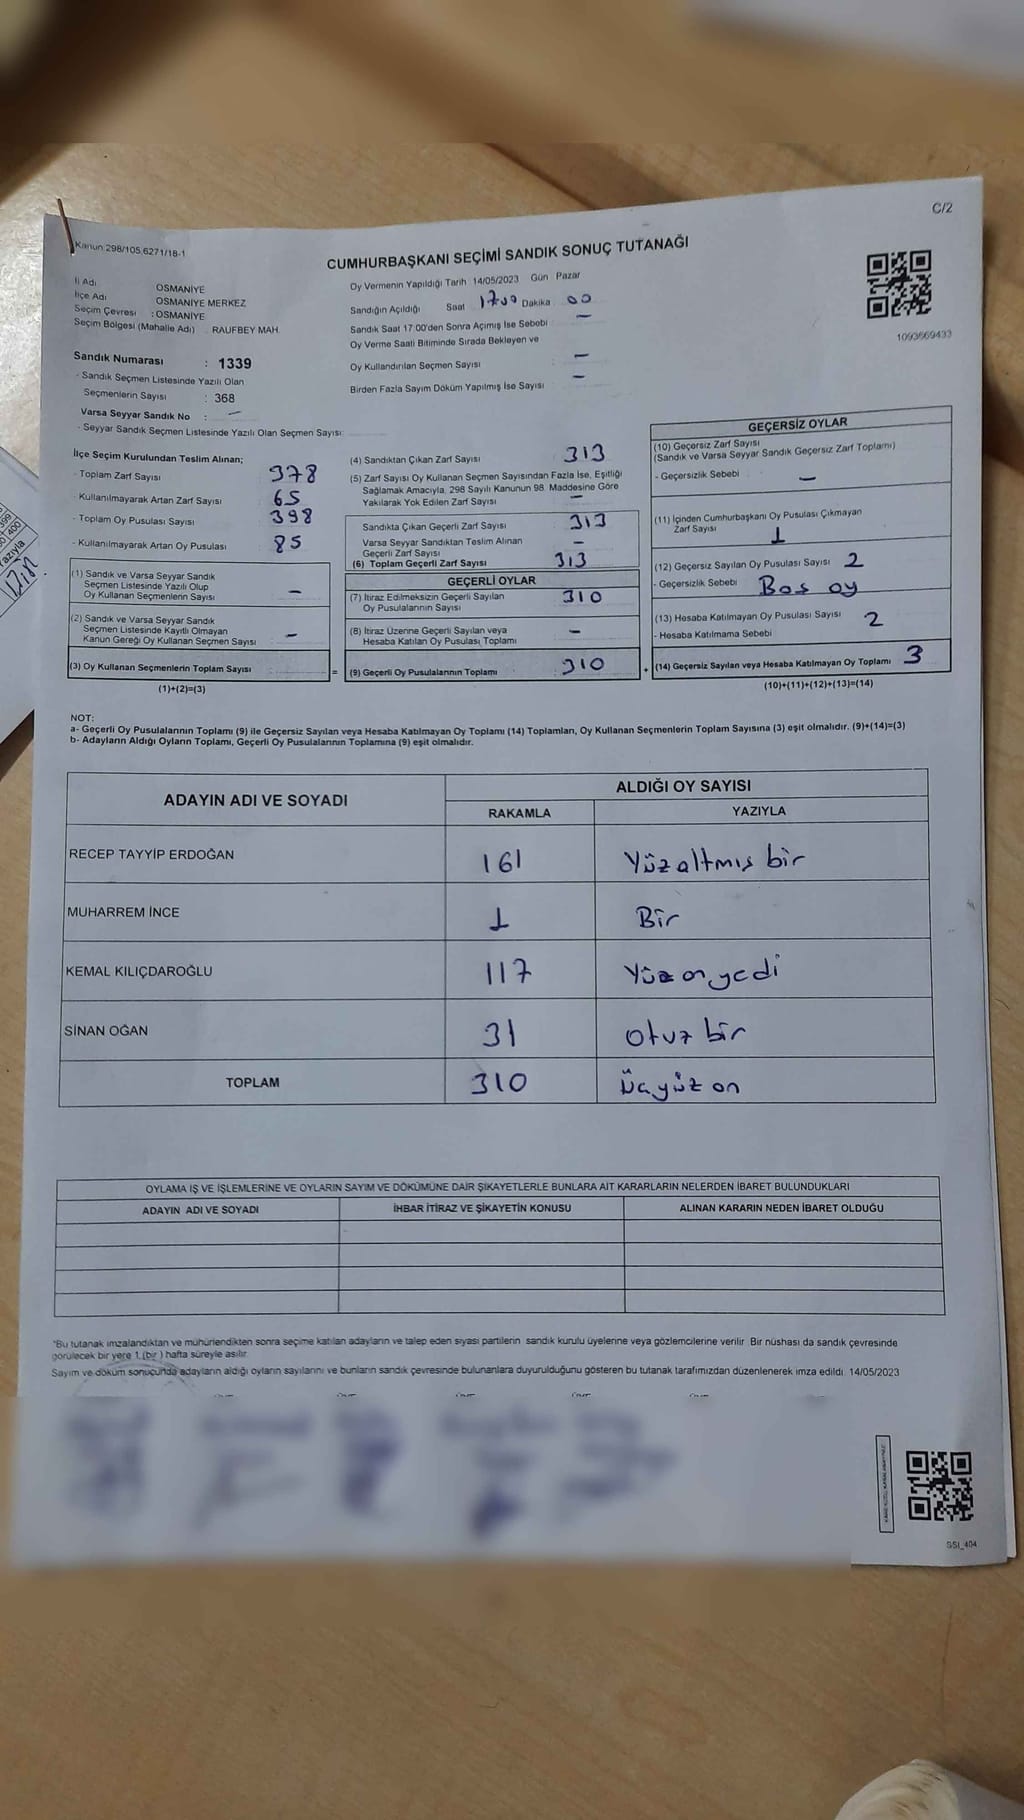 C/2
Kanun:298/105,6271/18-1
CUMHURBAŞKANI SEÇİMİ SANDIK SONUÇ TUTANAĞI
İl Adı OSMANİYE
İlçe Adı OSMANİYE MERKEZ
Seçim Çevresi : OSMANİYE
Seçim Bölgesi (Mahalle Adı) RAUFBEY MAH.
Oy Vermenin Yapıldığı Tarih 14/05/2023 Gün Pazar
Sandığın Açıldığı Saat 17:00 Dakika 00
Sandık Saat 17:00'den Sonra Açımış İse Sebebi –
Oy Verme Saati Bitiminde Sırada Bekleyen ve
Oy Kullandırılan Seçmen Sayısı –
Birden Fazla Sayım Döküm Yapılmış İse Sayısı –
1093669433
Sandık Numarası : 1339
- Sandık Seçmen Listesinde Yazılı Olan
Seçmenlerin Sayısı : 368
Varsa Seyyar Sandık No : –
- Seyyar Sandık Seçmen Listesinde Yazılı Olan Seçmen Sayısı:
İlçe Seçim Kurulundan Teslim Alınan;
- Toplam Zarf Sayısı 378
- Kullanılmayarak Artan Zarf Sayısı 65
- Toplam Oy Pusulası Sayısı 398
- Kullanılmayarak Artan Oy Pusulası 85
(1) Sandık ve Varsa Seyyar Sandık
Seçmen Listesinde Yazılı Olup
Oy Kullanan Seçmenlerin Sayısı –
(2) Sandık ve Varsa Seyyar Sandık
Seçmen Listesinde Kayıtlı Olmayan
Kanun Gereği Oy Kullanan Seçmen Sayısı –
(3) Oy Kullanan Seçmenlerin Toplam Sayısı =
(1)+(2)=(3)
(4) Sandıktan Çıkan Zarf Sayısı 313
(5) Zarf Sayısı Oy Kullanan Seçmen Sayısından Fazla İse, Eşitliği
Sağlamak Amacıyla, 298 Sayılı Kanunun 98. Maddesine Göre
Yakılarak Yok Edilen Zarf Sayısı –
Sandıkta Çıkan Geçerli Zarf Sayısı 313
Varsa Seyyar Sandıktan Teslim Alınan
Geçerli Zarf Sayısı –
(6) Toplam Geçerli Zarf Sayısı 313
GEÇERLİ OYLAR
(7) İtiraz Edilmeksizin Geçerli Sayılan
Oy Pusulalarının Sayısı 310
(8) İtiraz Üzerine Geçerli Sayılan veya
Hesaba Katılan Oy Pusulası Toplamı –
(9) Geçerli Oy Pusulalarının Toplamı 310 +
GEÇERSİZ OYLAR
(10) Geçersiz Zarf Sayısı
(Sandık ve Varsa Seyyar Sandık Geçersiz Zarf Toplamı)
- Geçersizlik Sebebi –
(11) İçinden Cumhurbaşkanı Oy Pusulası Çıkmayan
Zarf Sayısı 1
(12) Geçersiz Sayılan Oy Pusulası Sayısı 2
- Geçersizlik Sebebi Bos oy
(13) Hesaba Katılmayan Oy Pusulası Sayısı 2
- Hesaba Katılmama Sebebi
(14) Geçersiz Sayılan veya Hesaba Katılmayan Oy Toplamı 3
(10)+(11)+(12)+(13)=(14)
NOT:
a- Geçerli Oy Pusulalarının Toplamı (9) ile Geçersiz Sayılan veya Hesaba Katılmayan Oy Toplamı (14) Toplamları, Oy Kullanan Seçmenlerin Toplam Sayısına (3) eşit olmalıdır. (9)+(14)=(3)
b- Adayların Aldığı Oyların Toplamı, Geçerli Oy Pusulalarının Toplamına (9) eşit olmalıdır.
ADAYIN ADI VE SOYADI
ALDIĞI OY SAYISI
RAKAMLA YAZIYLA
RECEP TAYYİP ERDOĞAN 161 Yüzaltmış bir
MUHARREM İNCE 1 Bir
KEMAL KILIÇDAROĞLU 117 Yüz on yedi
SİNAN OĞAN 31 Otuz bir
TOPLAM 310 Üçyüz on
OYLAMA İŞ VE İŞLEMLERİNE VE OYLARIN SAYIM VE DÖKÜMÜNE DAİR ŞİKAYETLERLE BUNLARA AİT KARARLARIN NELERDEN İBARET BULUNDUKLARI
ADAYIN ADI VE SOYADI İHBAR İTİRAZ VE ŞİKAYETİN KONUSU ALINAN KARARIN NEDEN İBARET OLDUĞU
*Bu tutanak imzalandıktan ve mühürlendikten sonra seçime katılan adayların ve talep eden siyası partilerin sandık kurulu üyelerine veya gözlemcilerine verilir Bir nüshası da sandık çevresinde
görülecek bir yere 1 (bir) hafta süreyle asılır.
Sayım ve döküm sonucunda adayların aldığı oyların sayılarını ve bunların sandık çevresinde bulunanlara duyurulduğunu gösteren bu tutanak tarafımızdan düzenlenerek imza edildi. 14/05/2023
SSI_404